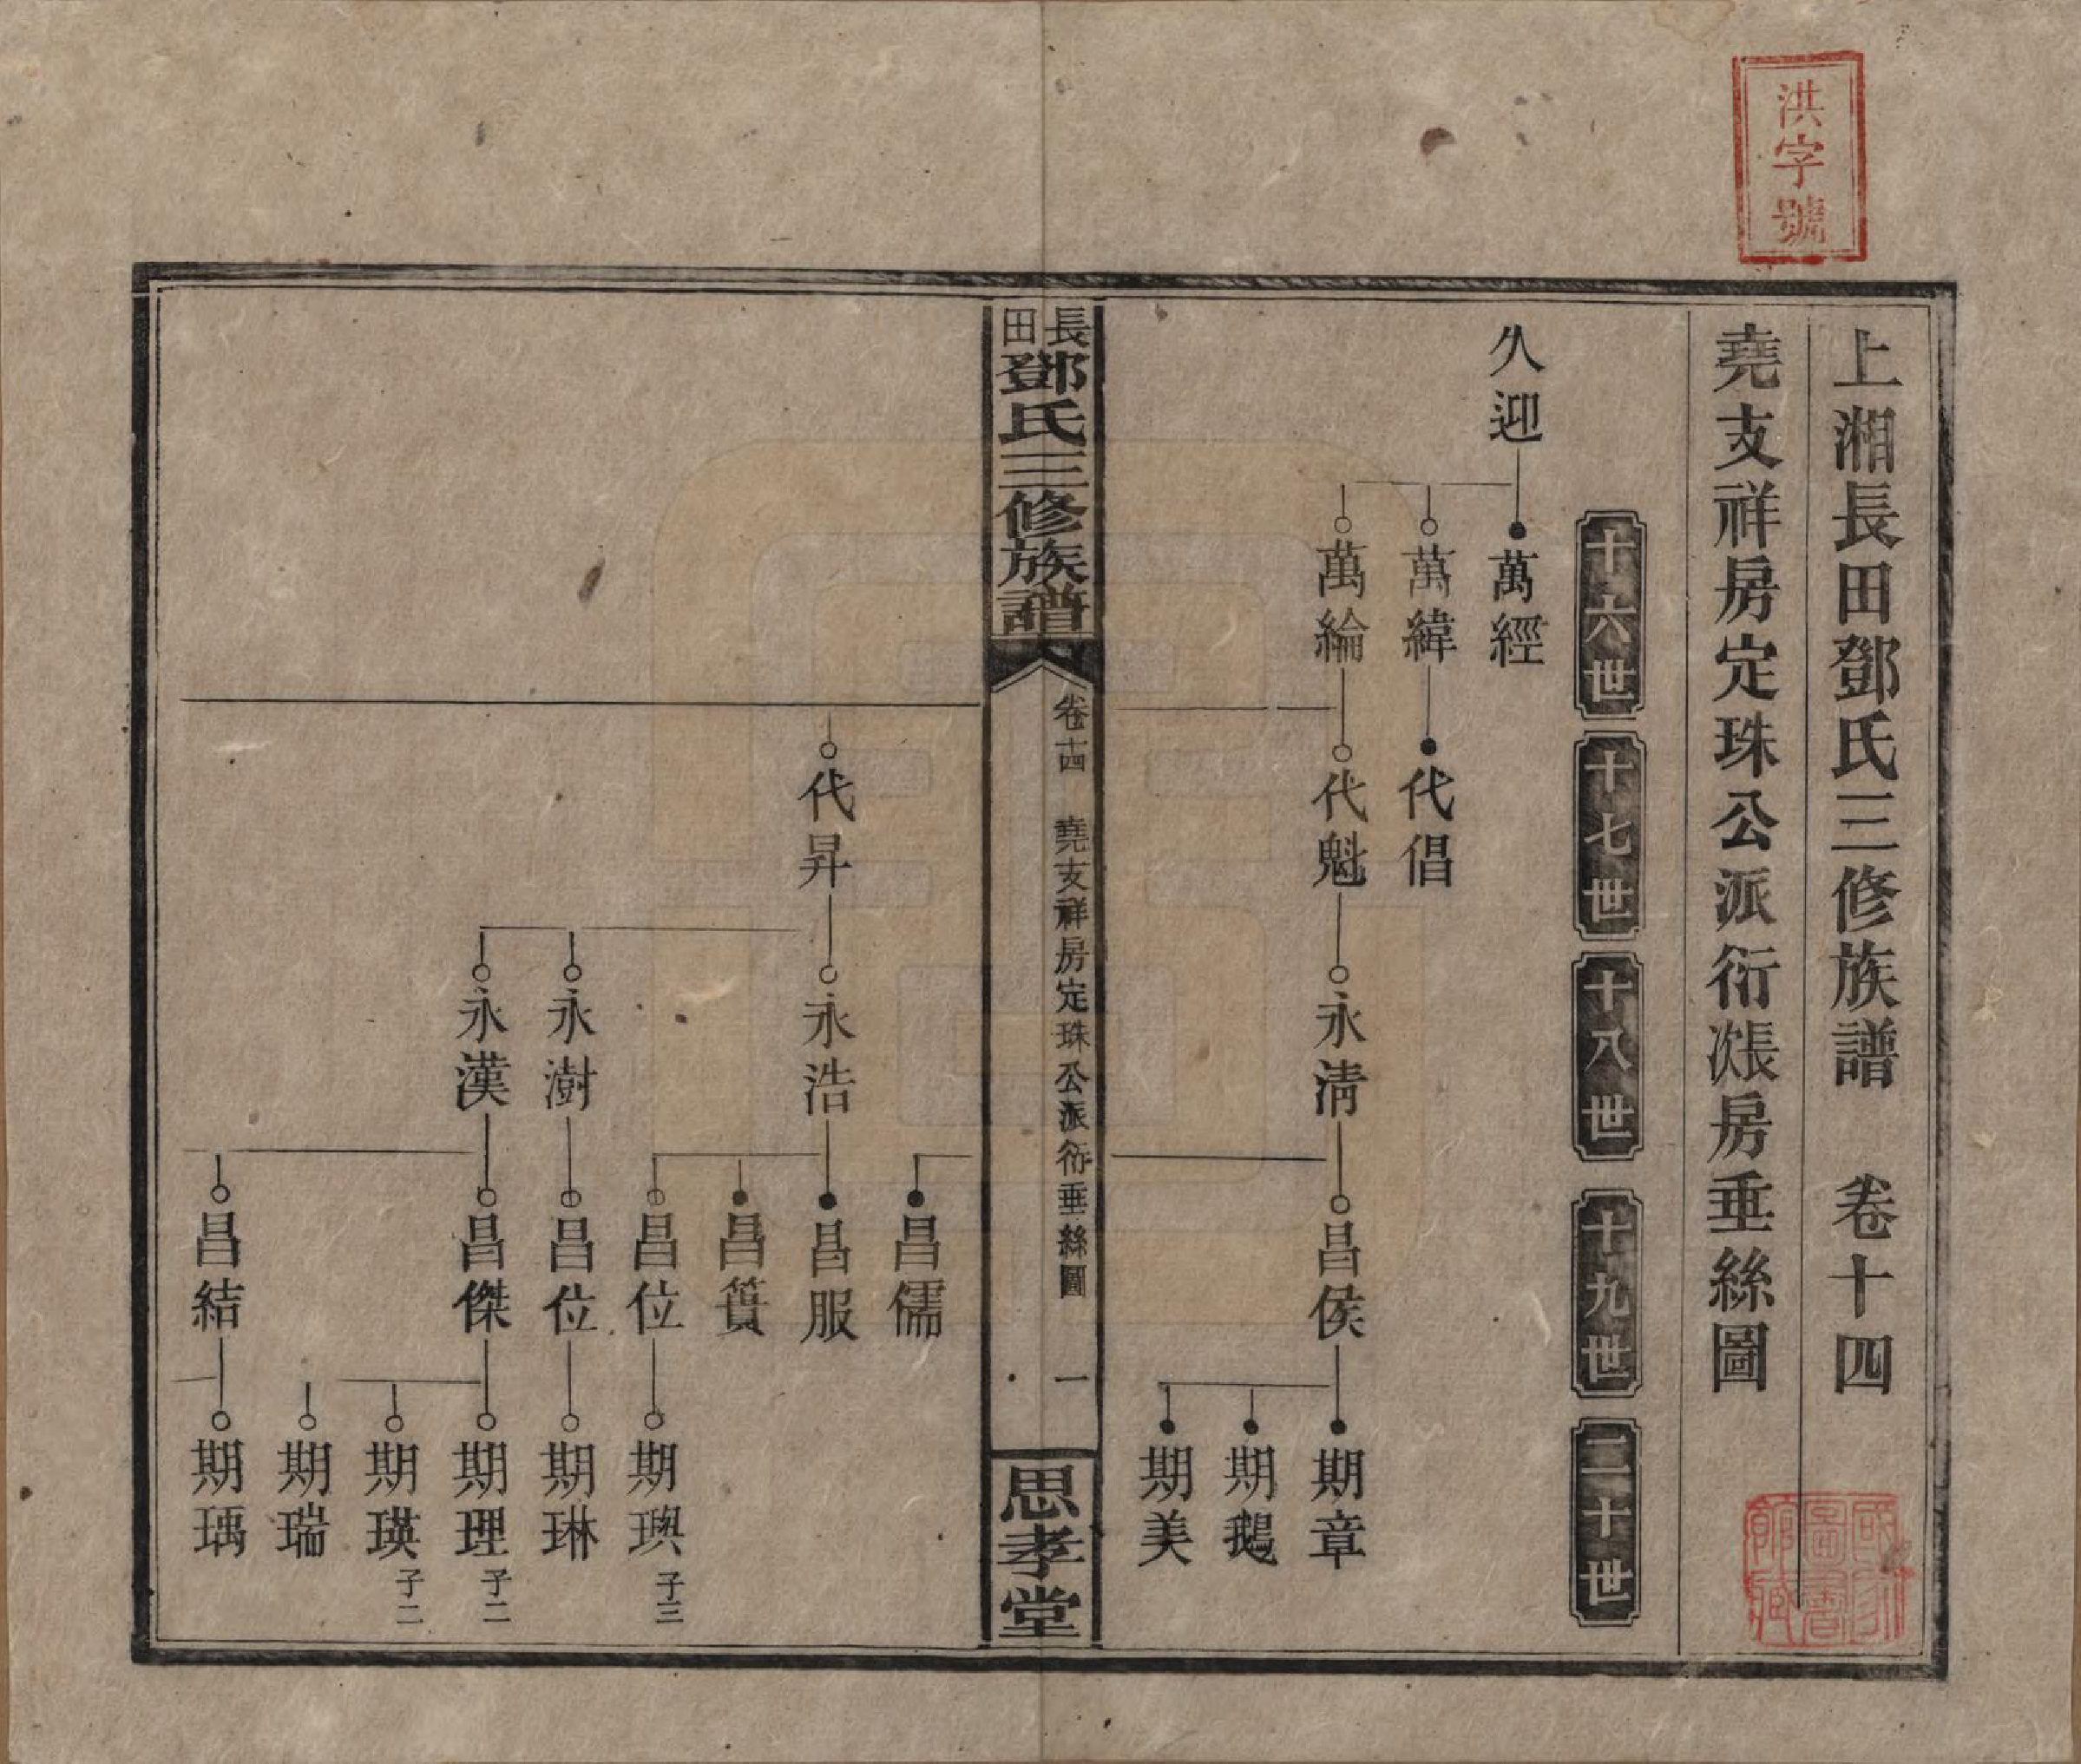 洪字號
上湘長田鄧氏三修族譜 卷十四
堯支祥房定珠公派衍漲房垂絲圖
十六世
十七世
十八世
十九世
二十世
久迎
萬經
萬緯
代倡
萬綸
代魁
永淸
昌侯
期章
期鵝
期美
長田鄧氏三修族譜
卷十四 堯支祥房定珠公派衍垂絲圖 一
思孝堂
昌儒
代昇
永浩
昌服
昌篢
昌位
期璵 子三
永澍
昌位
期琳
永漢
昌傑
期理 子二
期瑛 子二
期瑞
昌結
期瑀
國家圖書館藏